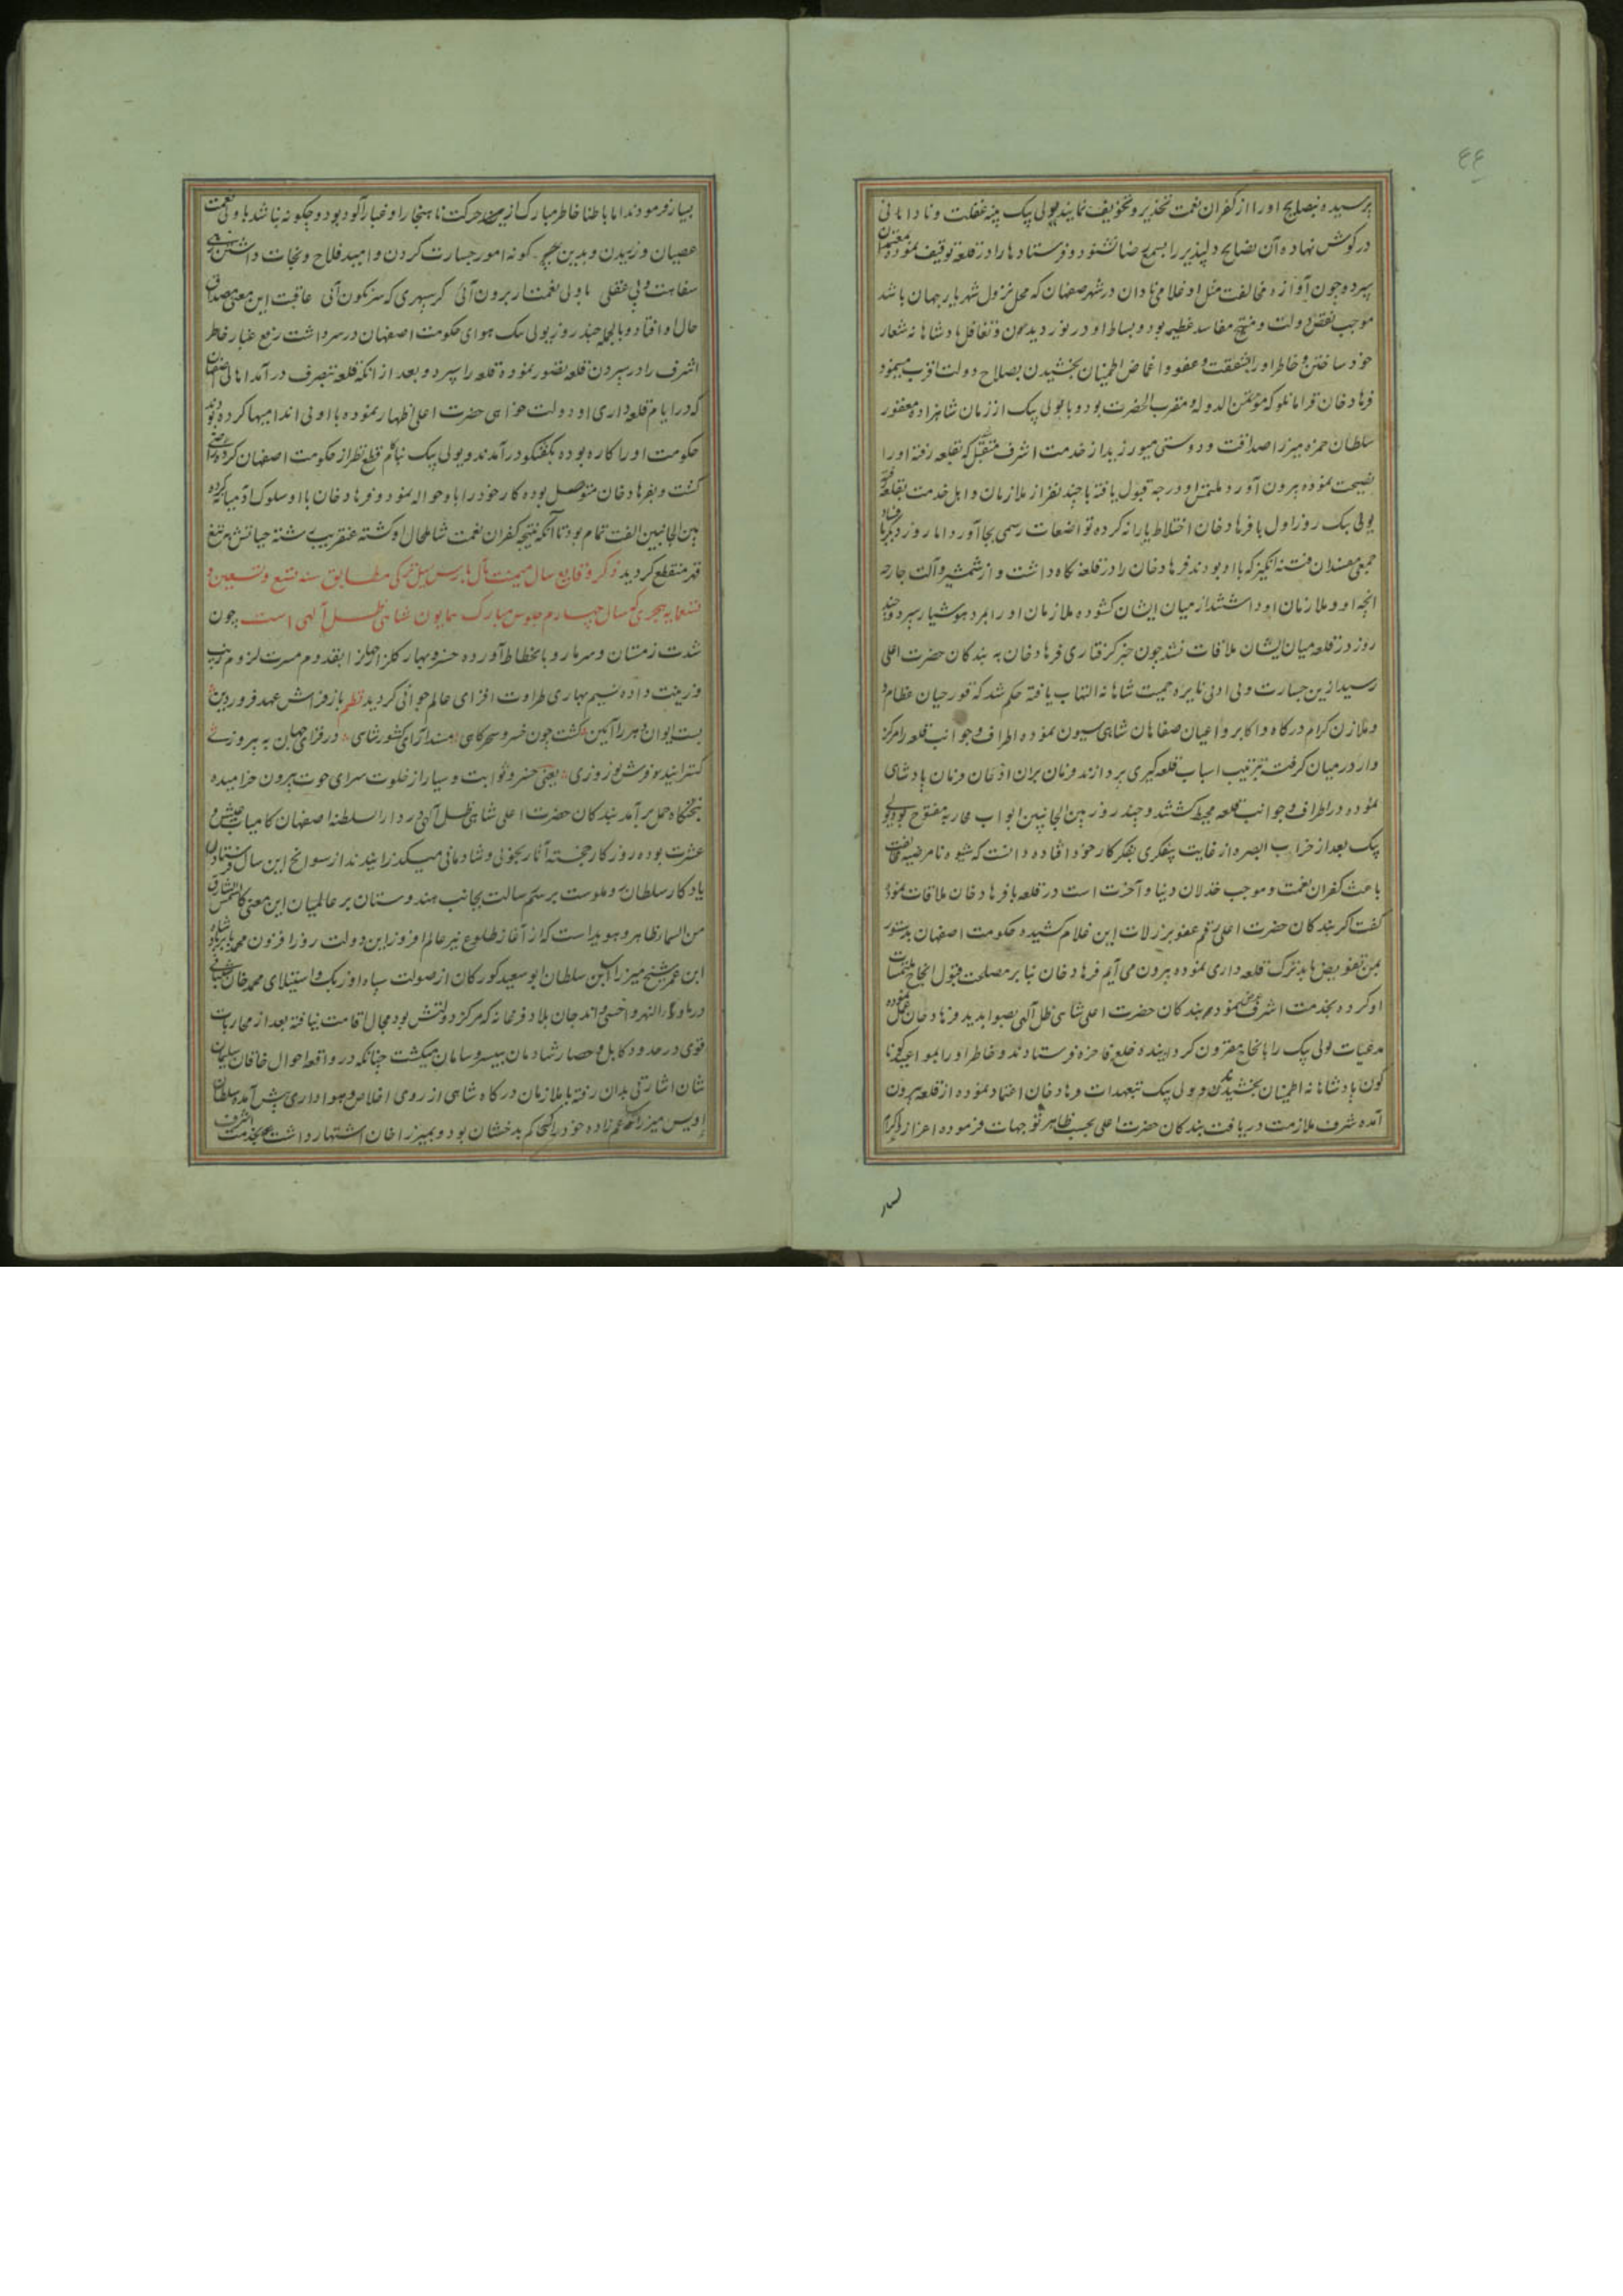 ٤٤
پرسیده نصایح او را از کفران نعمت تحذیر و تخویف نمایند یولی بیک پنبه غفلت و نادانی
در گوش نهاده آن نصایح دلپذیر را بسمع رضا نشنود و فرستادها را در قلعه توقیف نموده
سپرد و چون آوازه مخالفت مثل او غلامی نادان در شهر صفاهان که محل نزول شهریار جهان باشد
موجب نقص دولت و منتج مفاسد عظیم بود و بساط او در نوردیدن و تغافل پادشاهانه شعار
خود ساختن و خاطر او را بشفقت و عفو و اغماض اطمینان بخشیدن بصلاح دولت اقرب مینمود
فرهاد خان قرامانلو که مؤتمن الدوله و مقرب الحضرت بود و با یولی بیک از زمان شاهزاده مغفور
سلطان حمزه میرزا صداقت و دوستی میورزید از خدمت اشرف متقبل شد که بقلعه رفته او را
نصیحت نموده بیرون آورد ملتمس او درجه قبول یافته با چند نفر از ملازمان و اهل خدمت بقلعه رفته
یولی بیک روز اول با فرهاد خان اختلاط یارانه کرده تواضعات رسمی بجا آورد اما روز دیگر با
جمعی مفسدان فتنه انگیز که با او بودند فرهاد خان را در قلعه نگاه داشت و از شمشیر و آلت جارحه
انچه او و ملازمان او داشتند از میان ایشان گشوده ملازمان او را بمرد هوشیار سپرد و چند
روز در قلعه میان ایشان ملاقات نشد چون خبر گرفتاری فرهاد خان به بندگان حضرت اعلی
رسید ازین جسارت و بی ادبی نایره حمیت شاهانه التهاب یافته حکم شد که قورچیان عظام و
و ملازمان کرام درگاه و اکابر و اعیان صفاهان شاهی سیون نموده اطراف و جوانب قلعه را مرکز
وار در میان گرفته بترتیب اسباب قلعه گیری پردازند فرمان بران اذعان فرمان پادشاهی
نموده در اطراف و جوانب قلعه محیط گشتند و چند روز بین الجانبین ابواب محاربه مفتوح بود یولی
بیک بعد از خراب البصره از غایت بیفکری بفکر کار خود افتاده دانست که شیوه نامرضیه مخالفت
باعث کفران نعمت و موجب خذلان دنیا و آخرت است در قلعه با فرهاد خان ملاقات نموده
گفت اگر بندگان حضرت اعلی رقم عفو بر زلات این غلام کشیده حکومت اصفهان بدستور
بمن تفویض یابد ترک قلعه داری نموده بیرون می آیم فرهاد خان بنا بر مصلحت قبول انجاح ملتمسات
او کرده بخدمت اشرف عرض نمود و بندگان حضرت اعلی شاهی ظل آلهی بصوابدید فرهاد خان عمل نموده
مدعیات یولی بیک را بانجاح مقرون گردانیده خلع فاخره فرستادند و خاطر او را بمواعید گونا
گون پادشاهانه اطمینان بخشیدند و یولی بیک بتعهدات فرهاد خان اعتماد نموده از قلعه بیرون
آمده شرف ملازمت دریافت بندگان حضرت اعلی بحسب ظاهر توجهات فرموده اعزاز و اکرام
بسیار
بسیار فرمودند اما باطنا خاطر مبارک ازین حرکت ناهنجار او غبار آلود بود و چگونه نباشد با ولی نعمت
عصیان ورزیدن و بدین گونه امور جسارت کردن و امید فلاح و نجات داشتن
سفاهت و بی عقلی با ولی نعمت ار برون آئی گر سپهری که سرنگون آئی عاقبت این معنی مصداق
حال او افتاد و بالجمله چند روز یولی بیک هوای حکومت اصفهان در سر داشت رفع غبار خاطر
اشرف را در سپردن قلعه تصور نموده قلعه را سپرد و بعد از انکه قلعه بتصرف در آمد اهالی اصفهان
که در ایام قلعه داری او دولت خواهی حضرت اعلی اظهار نموده با او بی اندامیها کرده بودند
حکومت او را کاره بوده بگفتگو در آمدند و یولی بیک بناکام قطع نظر از حکومت اصفهان کرده راضی
گشت و بفرهاد خان متوصل بوده کار خود را باو حواله نمود و فرهاد خان با او سلوک آدمیانه کرده
بین الجانبین الفت تمام بود تا آنکه نتیجه کفران نعمت شامل حال او گشته عنقریب رشته حیاتش بتیغ
قهر منقطع گردید ذکر وقایع سال میمنت مآل بارس ئیل ترکی مطابق سنه تسع و تسعین و
تسعمایه هجری که سال چهارم جلوس مبارک همایون شاهی ظل آلهی است چون
شدت زمستان و سرما رو بانحطاط آورده خسرو بهار گلزار جهانرا بقدوم مسرت لزوم زیب
و زینت داده نسیم بهاری طراوت افزای عالم جوانی گردید نظم باز فراش عهد فروردین
بست ایوان دهر را آئین گشت چون خسرو سحرگاهی مسند آرای کشور شاهی در فزای جهان به پیروزی
گسترانید فرش نوروزی یعنی خسرو ثوابت و سیار از خلوت سرای حوت بیرون خرامیده
بتختگاه حمل بر آمد بندگان حضرت اعلی شاهی ظل آلهی در دار السلطنه اصفهان کامیاب عیش و
عشرت بوده روزگار خجسته آثار بخوبی و شادمانی میگذرانیدند از سوانح این سال فرستادن
یادگار سلطان روملوست برسم رسالت بجانب هندوستان بر عالمیان این معنی کالشمس الشارق
من السما ظاهر و هویداست که از آغاز طلوع نیر عالم افروز این دولت روز افزون محمد بابر پادشاه
ابن عمر شیخ میرزا ابن سلطان ابو سعید گورکان از صولت سپاه اوزبک و استیلای محمد خان شیبانی
در ماوراء النهر و اخسی و اندجان بلاد فرغانه که مرکز دولتش بود مجال اقامت نیافته بعد از محاربات
قوی در حدود کابل و حصار شادمان بیسر و سامان میگشت چنانکه در واقعه احوال خاقان سلیمان
شان اشارتی بدان رفته با ملازمان درگاه شاهی از روی اخلاص و هواداری پیش آمد سلطان
اویس میرزا عم زاده خود را که حاکم بدخشان بود و بمیرزا خان اشتهار داشت بخدمت اشرف